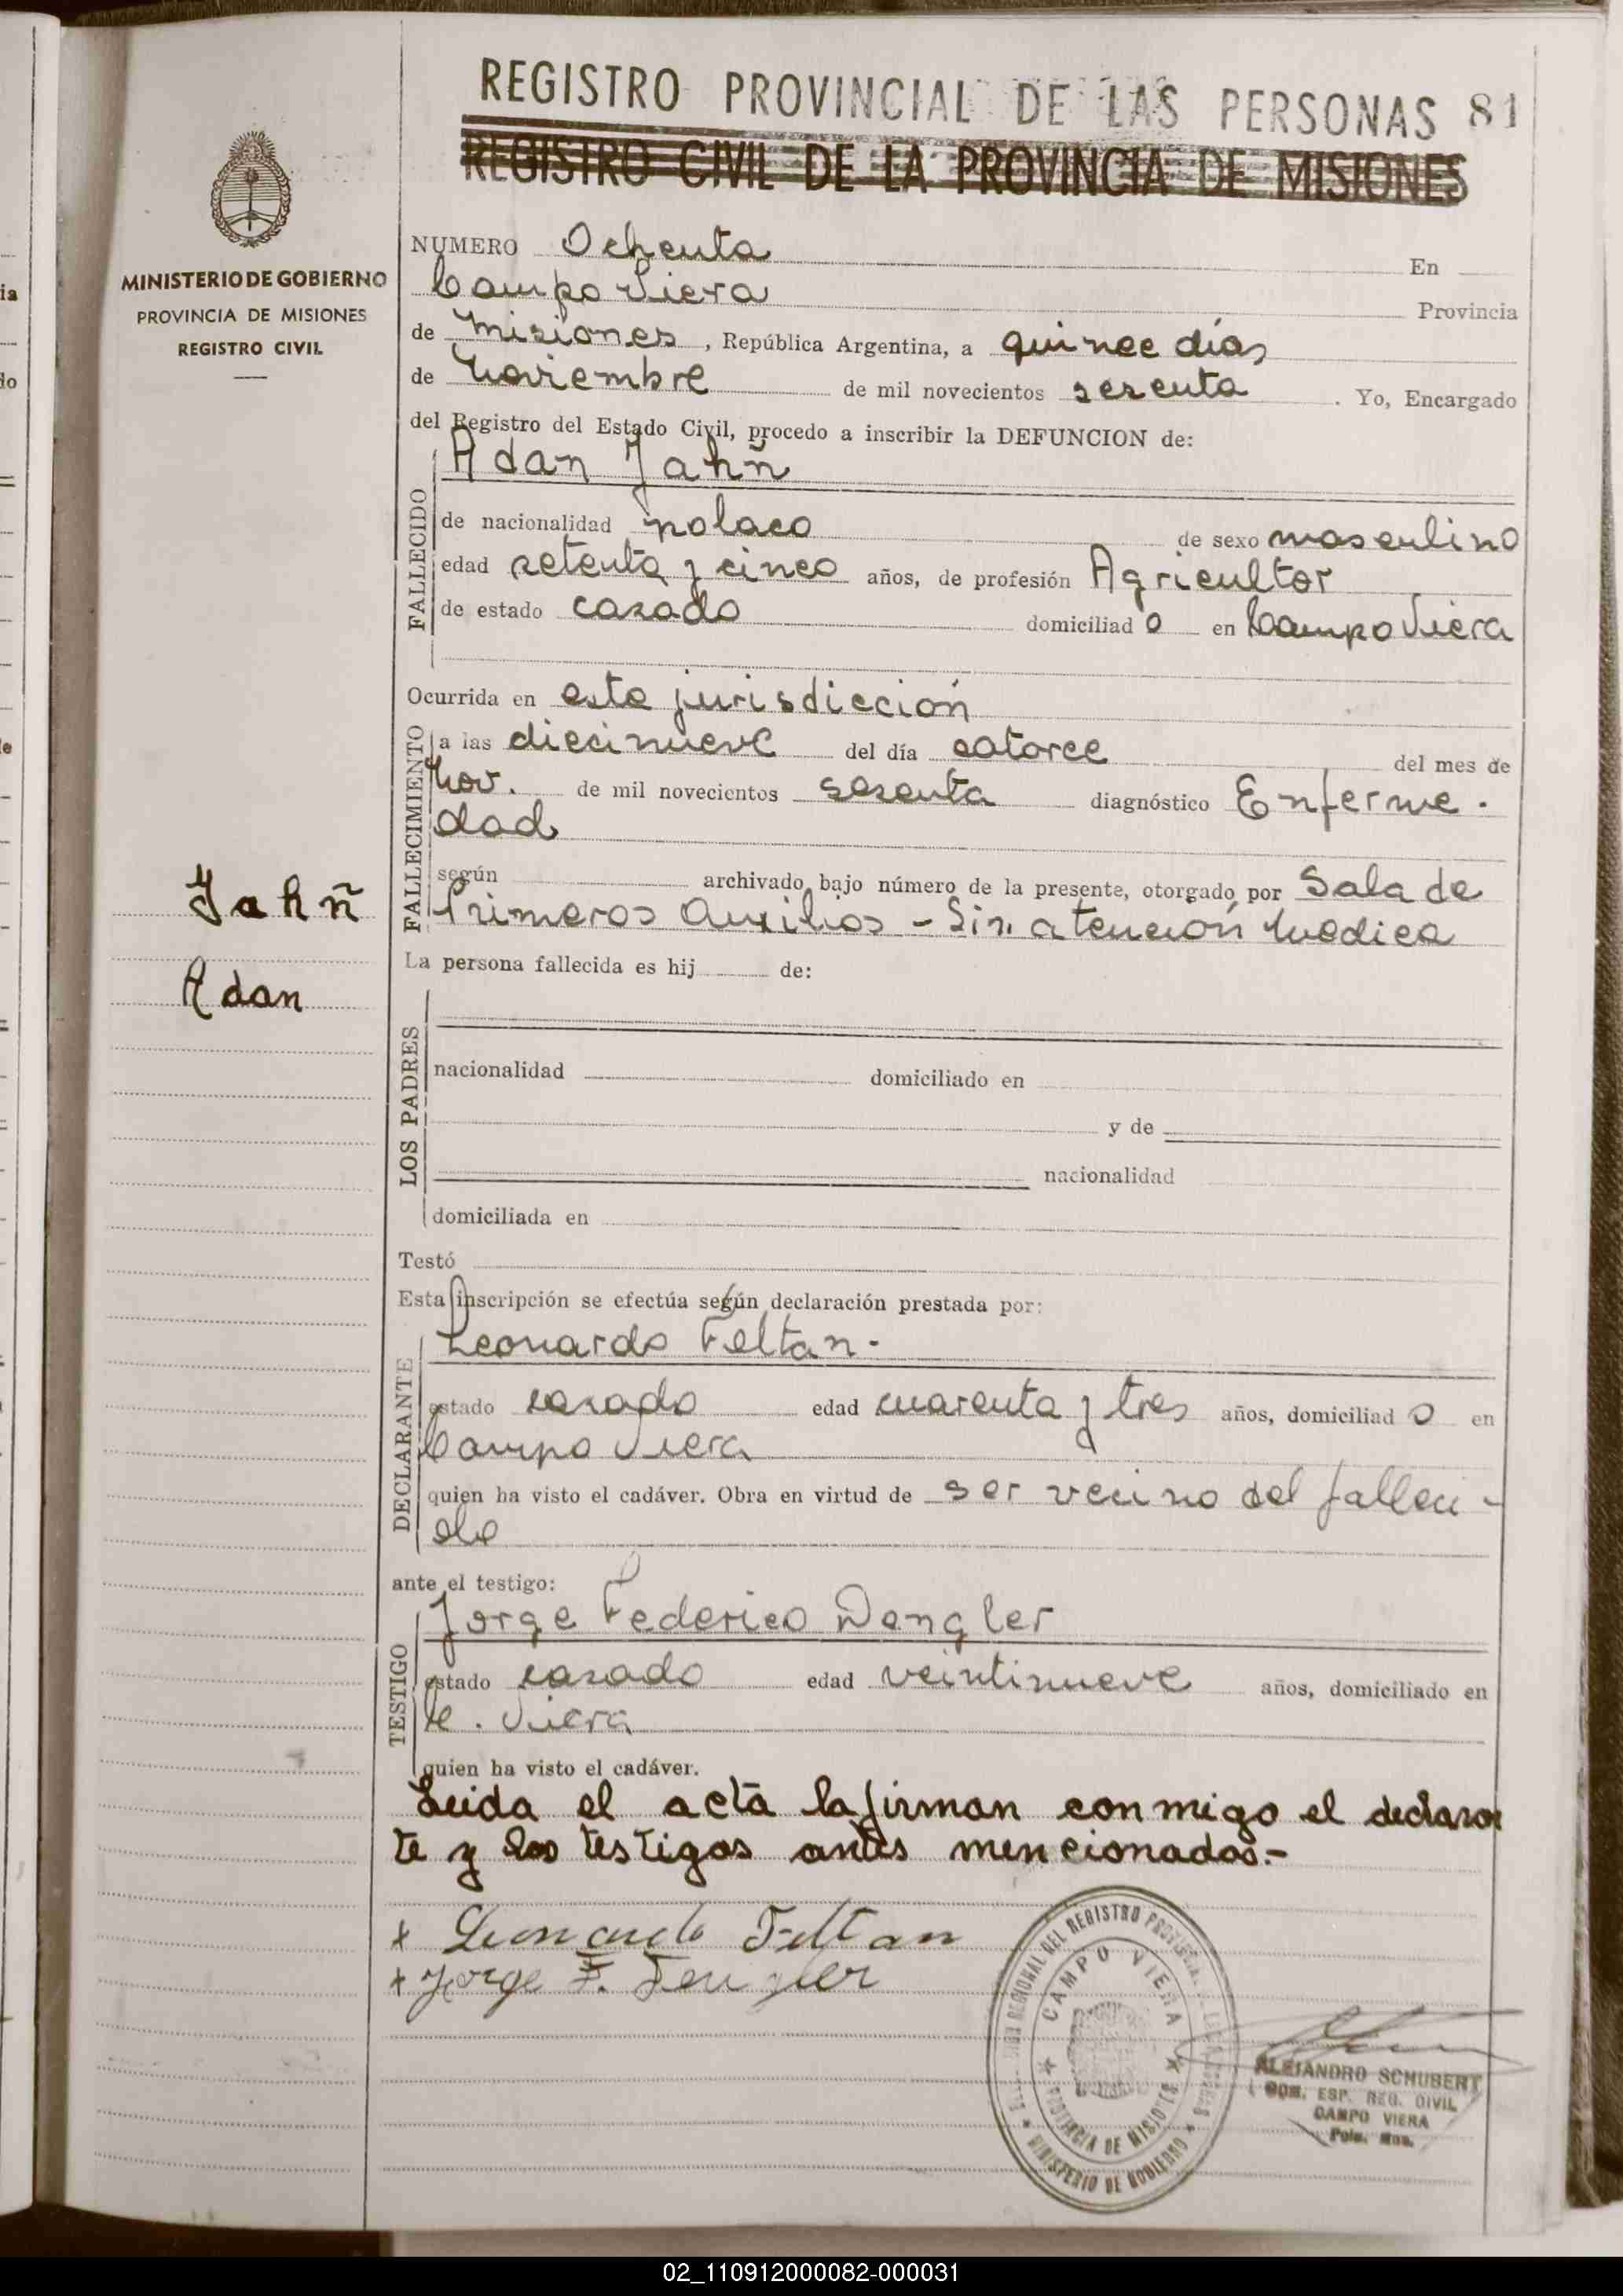 REGISTRO PROVINCIAL DE LAS PERSONAS 81
REGISTRO CIVIL DE LA PROVINCIA DE MISIONES
MINISTERIO DE GOBIERNO
PROVINCIA DE MISIONES
REGISTRO CIVIL
NUMERO Ochenta En
Campo Viera Provincia
de Misiones, República Argentina, a quince días
de Noviembre de mil novecientos sesenta . Yo, Encargado
del Registro del Estado Civil, procedo a inscribir la DEFUNCION de:
Adan Jahñ
FALLECIDO
de nacionalidad polaco de sexo masculino
edad setenta y cinco años, de profesión Agricultor
de estado casado domiciliad o en Campo Viera
Ocurrida en esta jurisdicción
FALLECIMIENTO
a las diecinueve del día catorce del mes de
Nov. de mil novecientos sesenta diagnóstico Enferme-
dad
según archivado bajo número de la presente, otorgado por Sala de
Primeros Auxilios - Sin atención Medica
Jahñ
Adan
La persona fallecida es hij de:
LOS PADRES
nacionalidad domiciliado en
y de
nacionalidad
domiciliada en
Testó
Esta inscripción se efectúa según declaración prestada por:
Leonardo Feltan-
DECLARANTE
estado casado edad cuarenta y tres años, domiciliad o en
Campo Viera
quien ha visto el cadáver. Obra en virtud de ser vecino del falleci-
do
ante el testigo:
Jorge Federico Dengler
TESTIGO
estado casado edad veintinueve años, domiciliado en
C. Viera
quien ha visto el cadáver.
Leida el acta la firman conmigo el declaran
te y los testigos antes mencionados.-
x Leonardo Feltan
x Jorge F. Dengler
REGIONAL DEL REGISTRO
CAMPO VIERA
PROVINCIA DE MISIONES
MINISTERIO DE GOBIERNO
ALEJANDRO SCHUBERT
COM. ESP. REG. CIVIL
CAMPO VIERA
02_110912000082-000031